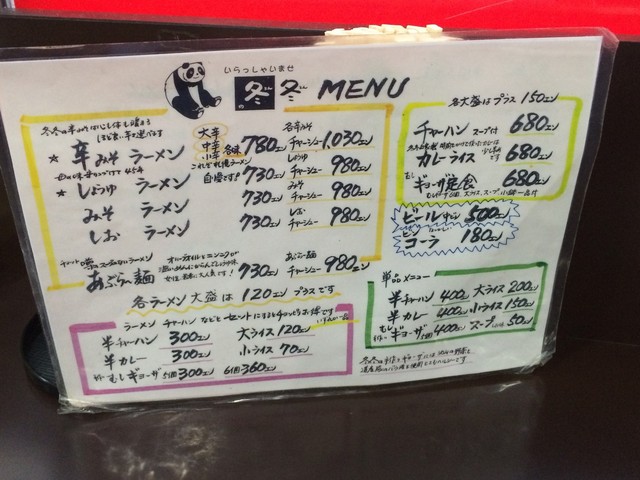 いらっしゃいませ
冬冬 MENU
大辛
中辛
小辛
★ 辛みそ ラーメン 各味 780エン 各辛みそ チャーシュー 1,030エン
★ しょうゆ ラーメン 730エン しょうゆ チャーシュー 980エン
みそ ラーメン 730エン みそ チャーシュー 980エン
しお ラーメン 730エン しお チャーシュー 980エン
自慢です!
あぶら〜麺 730エン あぶら〜麺 チャーシュー 980エン
各ラーメン 大盛は 120エン プラスです
ラーメン チャーハン などと セットにすると
半チャーハン 300エン 大ライス 120エン
半カレー 300エン 小ライス 70エン
むしギョーザ 5個 300エン 6個 360エン
各大盛は プラス 150エン
チャーハン スープ付 680エン
カレーライス 680エン
むしギョーザ定食 680エン
ビール 500エン
コーラ 180エン
単品メニュー
半チャーハン 400エン 大ライス 200エン
半カレー 400エン 小ライス 150エン
むしギョーザ 5個 400エン スープ 50エン